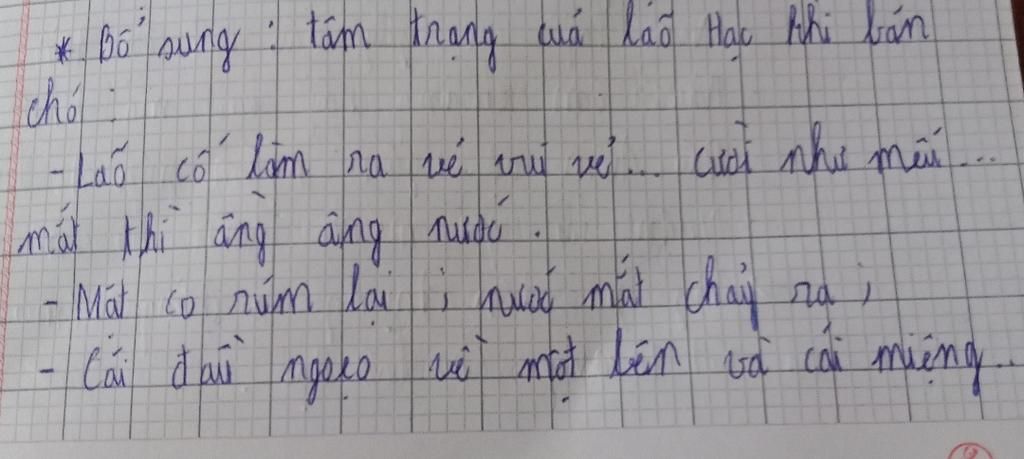 * Bổ sung : tâm trạng của Lão Hạc khi bán
chó :
- Lão cố làm ra vẻ vui vẻ... cười như mếu...
mắt thì ầng ậng nước.
- Mặt co rúm lại ; nước mắt chảy ra ;
- Cái đầu ngoẹo về một bên và cái miệng...